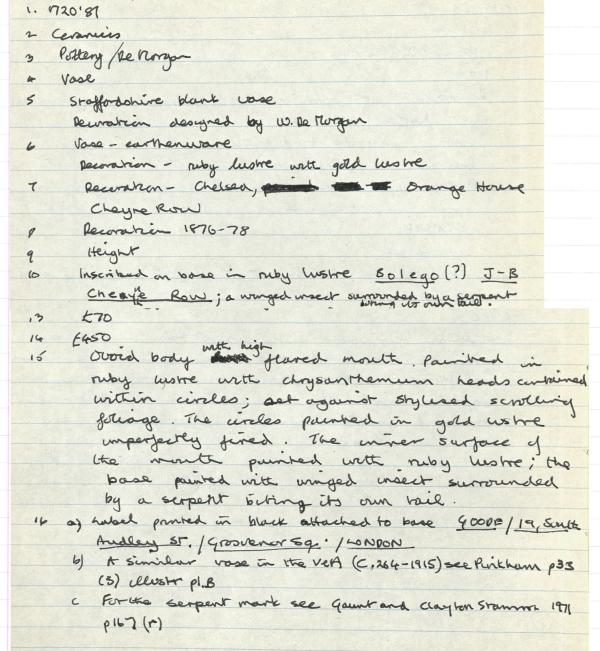 1. 1720'87
2 Ceramics
3 Pottery/De Morgan
4 Vase
5 Staffordshire blank vase
Decoration designed by W. De Morgan
6 Vase - earthenware
Decoration - ruby lustre with gold lustre
7 Decoration - Chelsea, Orange House
Cheyne Row
8 Decoration 1876-78
9 Height
10 Inscribed on base in ruby lustre Solego(?) J-B
Cheyne Row; a winged insect surrounded by a serpent
biting its own tail.
13 £70
14 £450
15 Ovoid body with high flared mouth. Painted in
ruby lustre with chrysanthemum heads contained
within circles; set against stylised scrolling
foliage. The circles painted in gold lustre
imperfectly fired. The inner surface of
the mouth painted with ruby lustre; the
base painted with winged insect surrounded
by a serpent biting its own tail.
16 a) Label printed in black attached to base GOODE/19, South
Audley St./Grosvenor Sq./LONDON
b) A similar vase in the V&A (C.264-1915) see Pinkham p33
(3) illustr pl.B
c For the serpent mark see Gaunt and Clayton Stamm 1971
p167 (r)